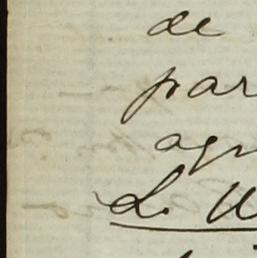 de
par
agr
L. W